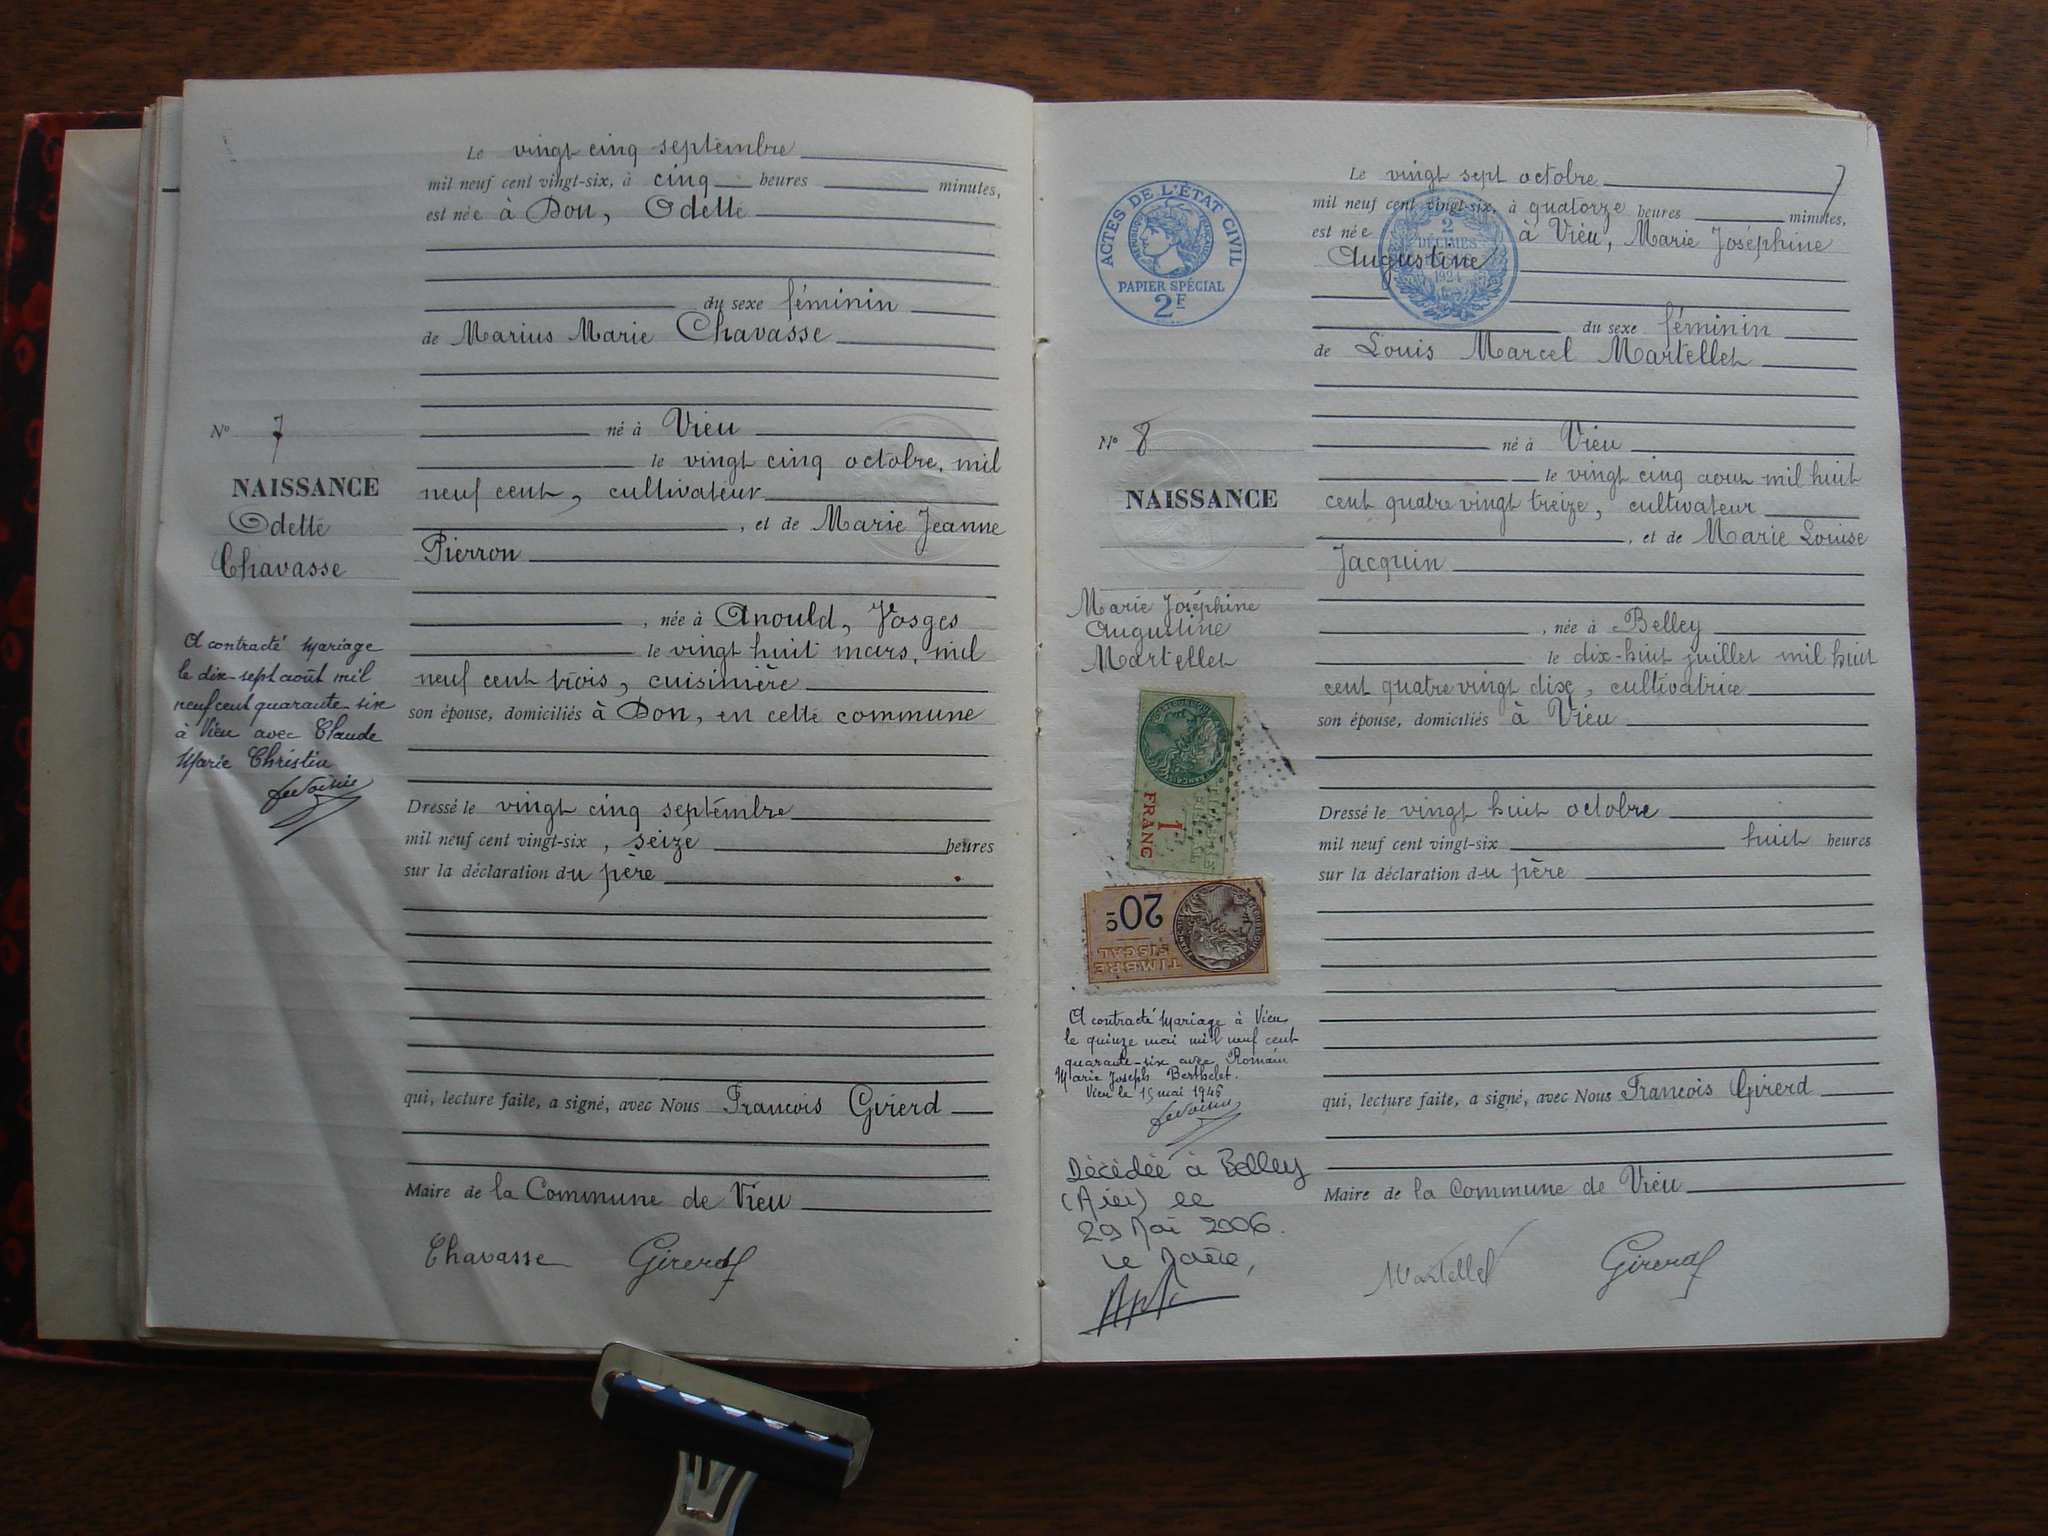 Le vingt cinq septembre
mil neuf cent vingt-six, à cinq heures minutes,
est née à Don, Odette
du sexe féminin
de Marius Marie Chavasse
né à Vieu
le vingt cinq octobre, mil
neuf cent, cultivateur
, et de Marie Jeanne
Pierron
, née à Anould, Vosges
le vingt huit mars, mil
neuf cent trois, cuisinière
son épouse, domiciliés à Don, en cette commune
Dressé le vingt cinq septembre
mil neuf cent vingt-six, seize heures
sur la déclaration du père
qui, lecture faite, a signé, avec Nous Francois Girerd
Maire de la Commune de Vieu
Chavasse Girerd
No 7
NAISSANCE
Odette
Chavasse
A contracté mariage
le dix-sept août mil
neuf cent quarante six
à Vieu avec Claude
Marie Christin
Le vingt sept octobre
7
mil neuf cent vingt-six, à quatorze heures minutes,
est née à Vieu, Marie Joséphine
Augustine
du sexe féminin
de Louis Marcel Martellet
né à Vieu
le vingt cinq aout mil huit
cent quatre vingt treize, cultivateur
, et de Marie Louise
Jacquin
, née à Belley
le dix-huit juillet mil huit
cent quatre vingt dix, cultivatrice
son épouse, domiciliés à Vieu
Dressé le vingt huit octobre
mil neuf cent vingt-six huit heures
sur la déclaration du père
qui, lecture faite, a signé, avec Nous Francois Girerd
Maire de la Commune de Vieu
Martellet Girerd
ACTES DE L'ÉTAT CIVIL
PAPIER SPÉCIAL
2F
2
DÉCIMES
1924
No 8
NAISSANCE
Marie Joséphine
Augustine
Martellet
1F
FRANC
20c
TIMBRE
FISCAL
A contracté mariage à Vieu
le quinze mai mil neuf cent
quarante-six avec Romain
Marie Joseph Berthelet.
Vieu le 15 mai 1946
Décédée à Belley
(Ain) le
29 Mai 2006.
Le Maire,